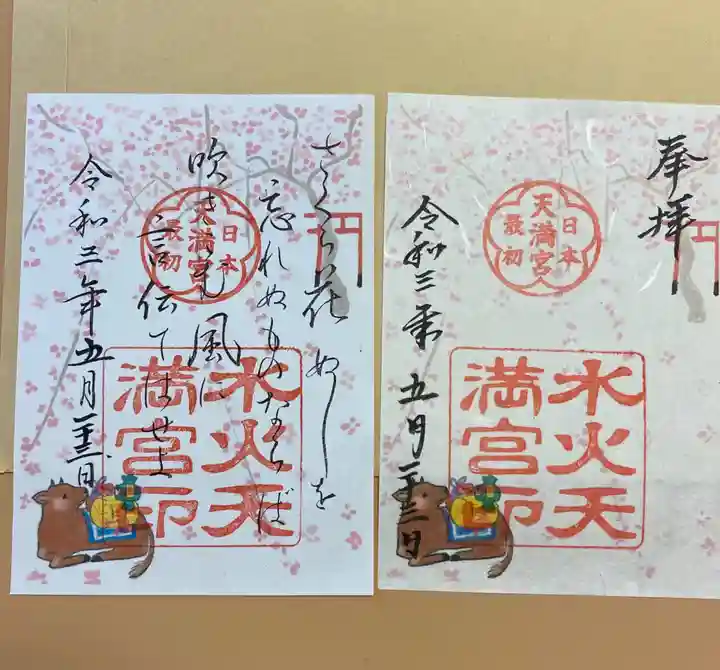 さくら花 ぬしを
忘れぬものならば
吹き 風に
言伝てはせよ
令和三年五月二十三日
日本
天満宮
最初
水火天
満宮印
奉拝
日本
天満宮
最初
水火天
満宮印
令和三年五月二十三日